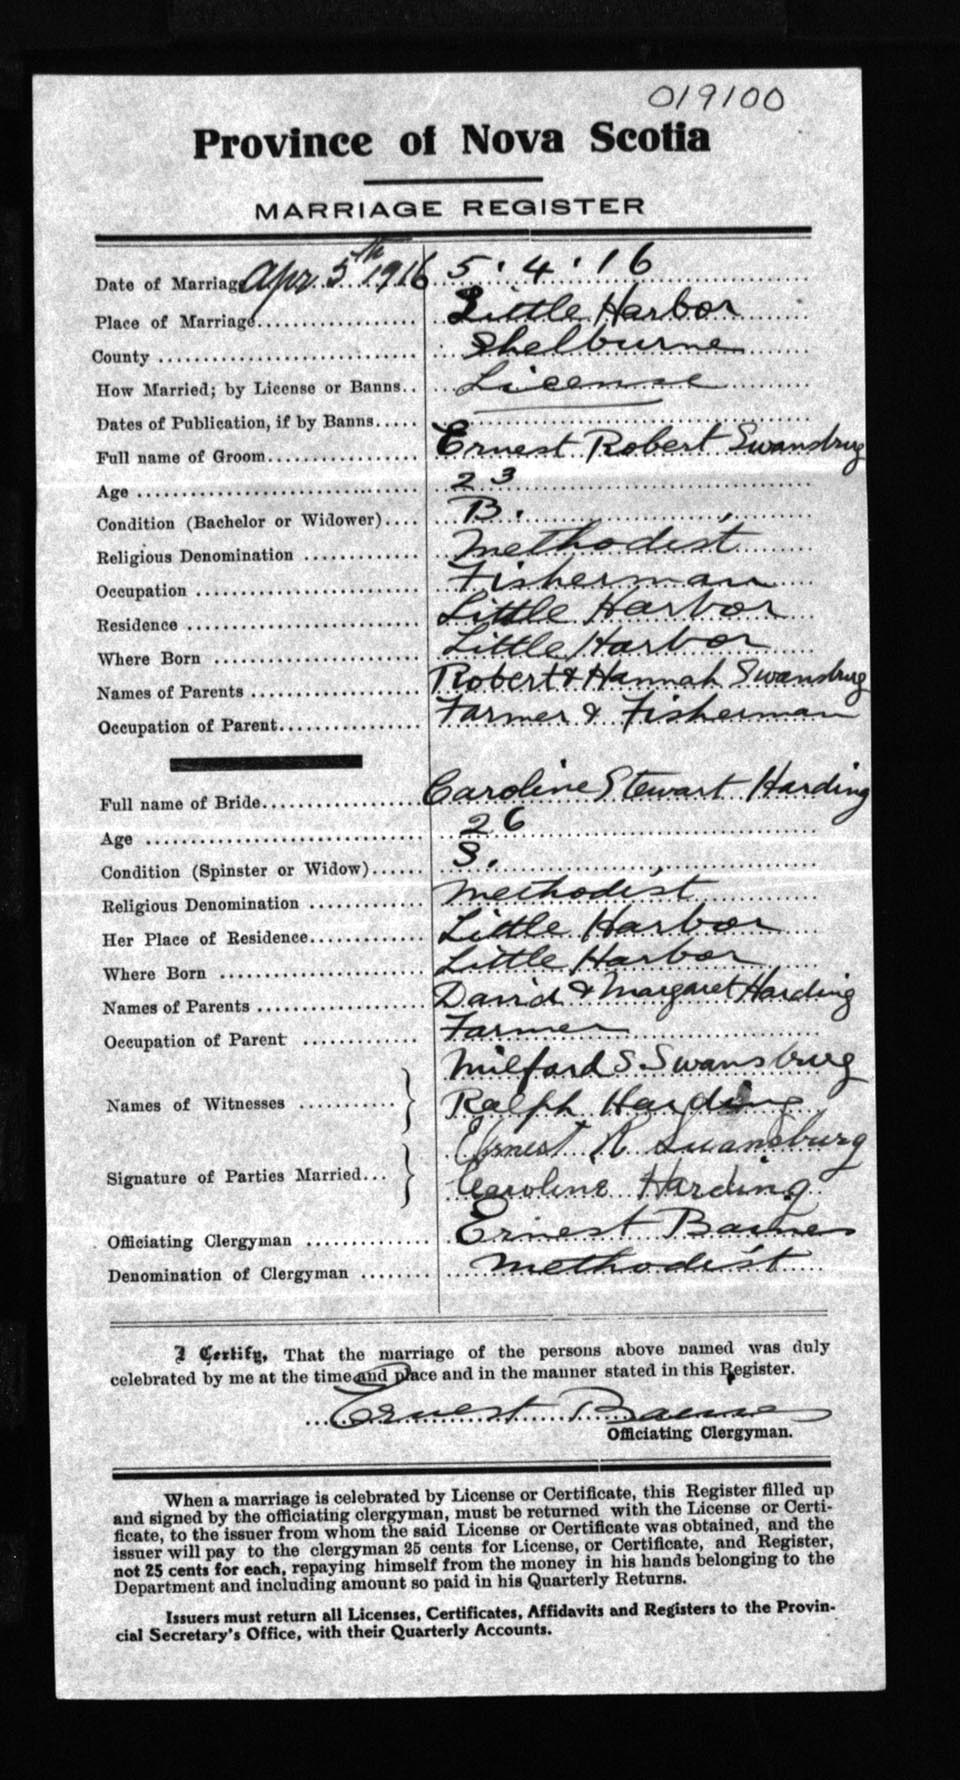 019100
Province of Nova Scotia
MARRIAGE REGISTER
Date of Marriage Apr 5th 1916 5.4.16
Place of Marriage Little Harbor
County Shelburne
How Married; by License or Banns License
Dates of Publication, if by Banns
Full name of Groom Ernest Robert Swansburg
Age 23
Condition (Bachelor or Widower) B.
Religious Denomination Methodist
Occupation Fisherman
Residence Little Harbor
Where Born Little Harbor
Names of Parents Robert & Hannah Swansburg
Occupation of Parent Farmer & Fisherman
Full name of Bride Caroline Stewart Harding
Age 26
Condition (Spinster or Widow) S.
Religious Denomination Methodist
Her Place of Residence Little Harbor
Where Born Little Harbor
Names of Parents David & Margaret Harding
Occupation of Parent Farmer
Milford S. Swansburg
Names of Witnesses Ralph Harding
Ernest R Swansburg
Signature of Parties Married Caroline Harding
Officiating Clergyman Ernest
Denomination of Clergyman Methodist
I Certify, That the marriage of the persons above named was duly
celebrated by me at the time and place and in the manner stated in this Register.
Ernest
Officiating Clergyman.
When a marriage is celebrated by License or Certificate, this Register filled up
and signed by the officiating clergyman, must be returned with the License or Certi-
ficate, to the issuer from whom the said License or Certificate was obtained, and the
issuer will pay to the clergyman 25 cents for License, or Certificate, and Register,
not 25 cents for each, repaying himself from the money in his hands belonging to the
Department and including amount so paid in his Quarterly Returns.
Issuers must return all Licenses, Certificates, Affidavits and Registers to the Provin-
cial Secretary's Office, with their Quarterly Accounts.